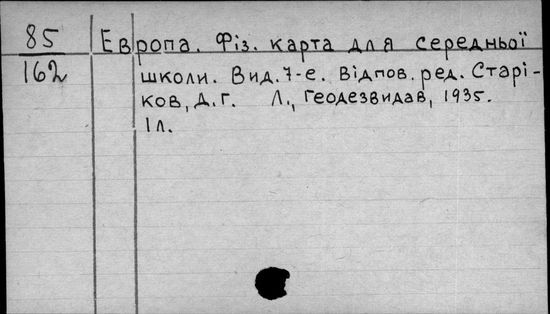 85
162
Европа. Фіз. карта для середньої
школи. Вид. 7-е. Відпов. ред. Старі-
ков, Д.Г. Л., Геодезвидав, 1935.
1л.